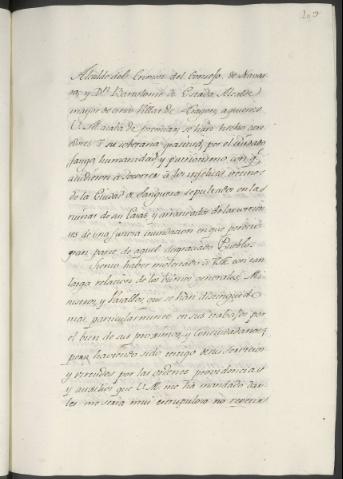 Alcalde del Crimen del Consejo de Navar
ra, y Dn. Bartolomé de Estada Alcalde
mayor de cinco Villas de Aragon, a quienes
V. M. acaba de premiar, se han hecho acre
edores á su soberana gratitud, por el
humanidad, y patriotismo, con q.e
acudieron á socorrer á los infelices vecinos
de la Ciudad de Sanguesa sepultados en las
ruinas de sus Casas y arruinados de las corrien
tes de una furiosa inundacion en que pereció
gran parte de aquel desgraciado Pueblo.
Siento haber molestado á V. M. con tan
larga relacion de los buenos Generales, Mi
nistros, y Vasallos, que se han distinguido
mas particularmente en sus trabajos por
el bien de sus proximos, y Conciudadanos;
pero habiendo sido testigo de sus servicios
y virtudes por las ordenes, providencias
y auxilios que V. M. me ha mandado dar
les me sería mui escrupuloso no